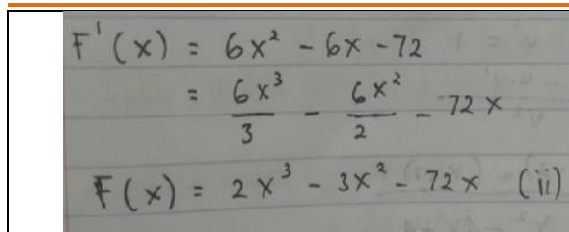 F'(x) = 6x² - 6x - 72
= 6x³/3 - 6x²/2 - 72x
F(x) = 2x³ - 3x² - 72x (ii)